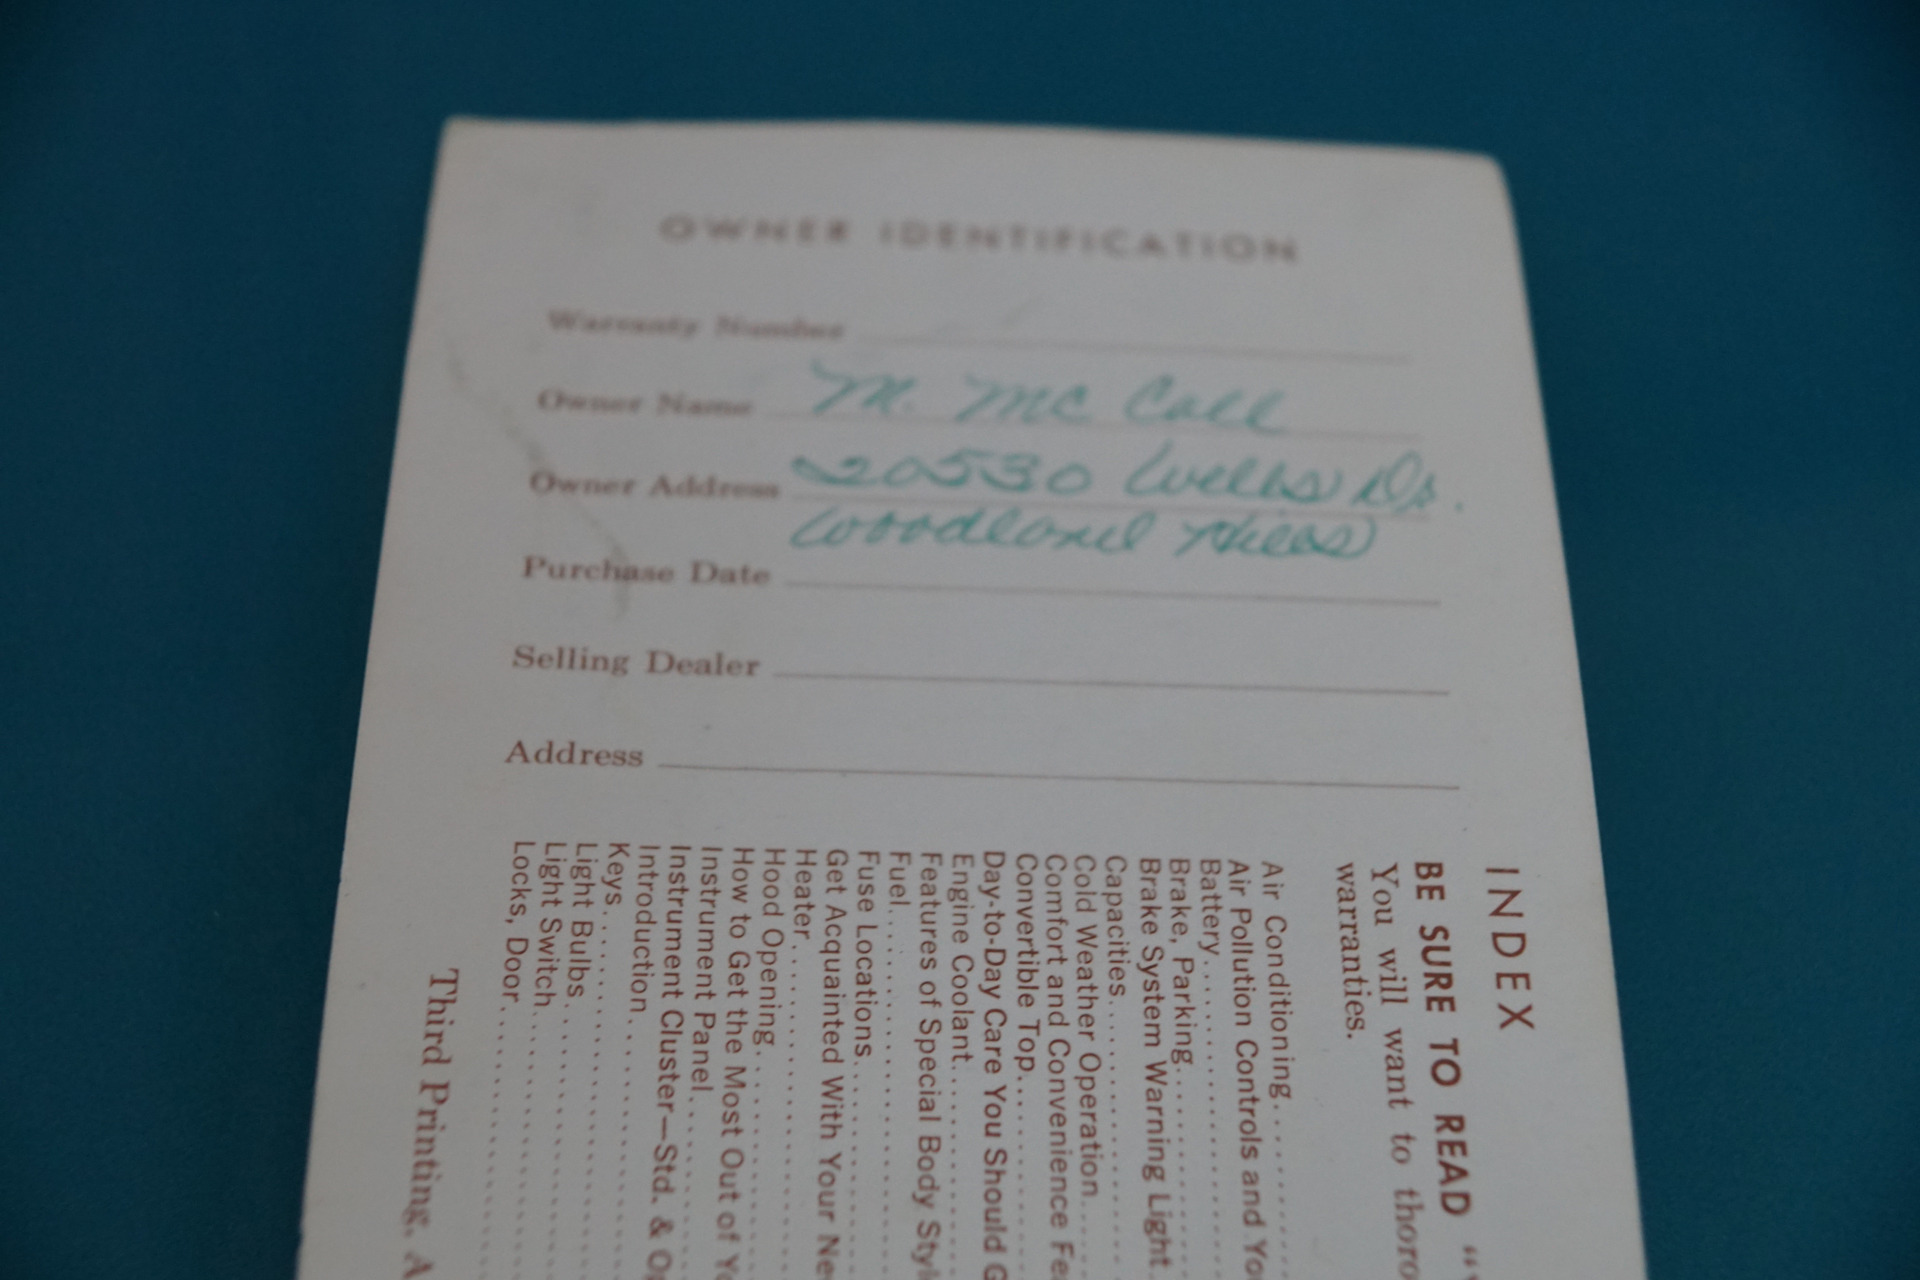 OWNER IDENTIFICATION
Warranty Number
Owner Name M. McCall
Owner Address 20530 Wells Dr.
Woodland Hills
Purchase Date
Selling Dealer
Address
INDEX
BE SURE TO READ
You will want to
warranties.
Air Conditioning
Air Pollution Controls and
Battery
Brake, Parking
Brake System Warning Light
Capacities
Cold Weather Operation
Comfort and Convenience
Convertible Top
Day-to-Day Care You Should
Engine Coolant
Features of Special Body
Fuel
Fuse Locations
Get Acquainted With Your
Heater
Hood Opening
How to Get the Most Out of
Instrument Panel
Instrument Cluster—Std. &
Introduction
Keys
Light Bulbs
Light Switch
Locks, Door
Third Printing,